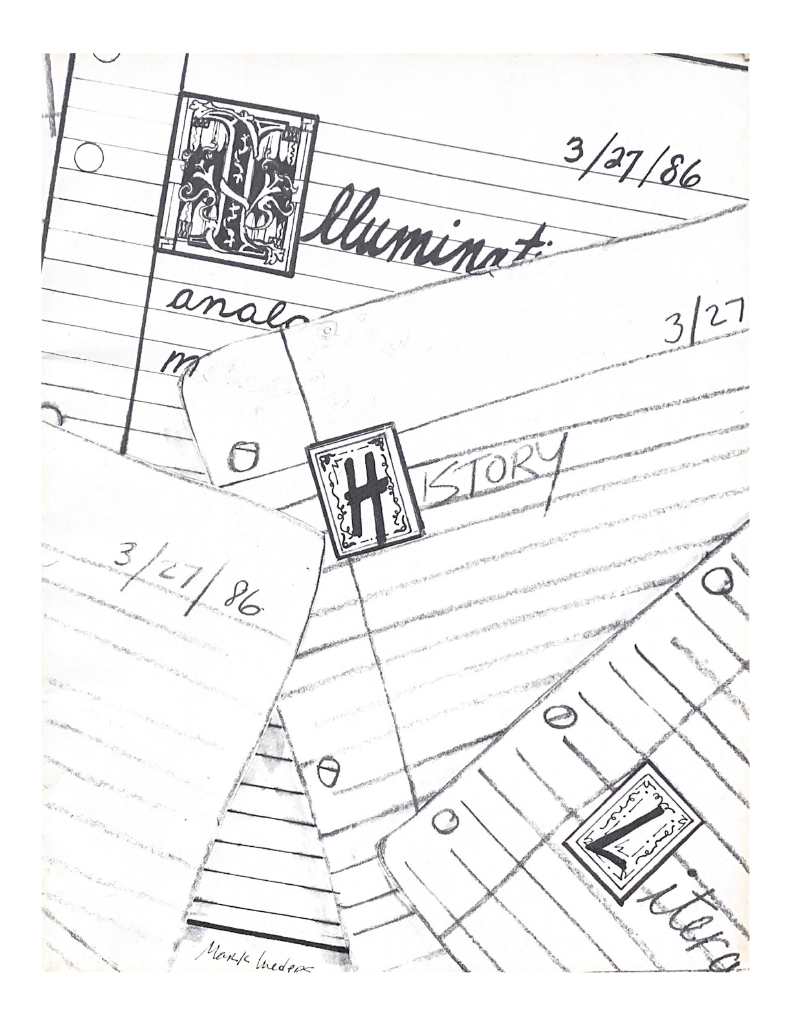 3/27/86
Illuminati
analo
m
3/27
HISTORY
3/27/86
Litera
Mark